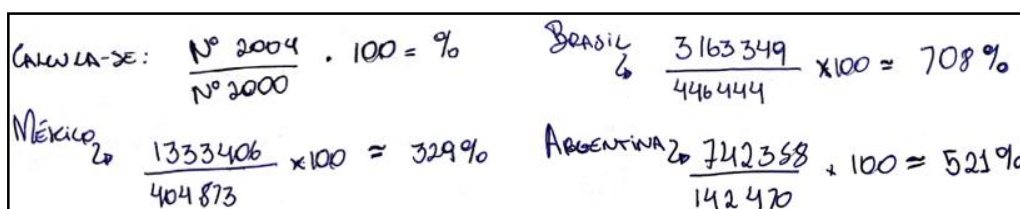 CALCULA-SE: Nº 2004 / Nº 2000 . 100 = %
BRASIL ↳ 3163349 / 446444 ×100 ≃ 708%
MÉXICO ↳ 1333406 / 404873 ×100 ≃ 329%
ARGENTINA ↳ 742358 / 142470 × 100 ≃ 521%